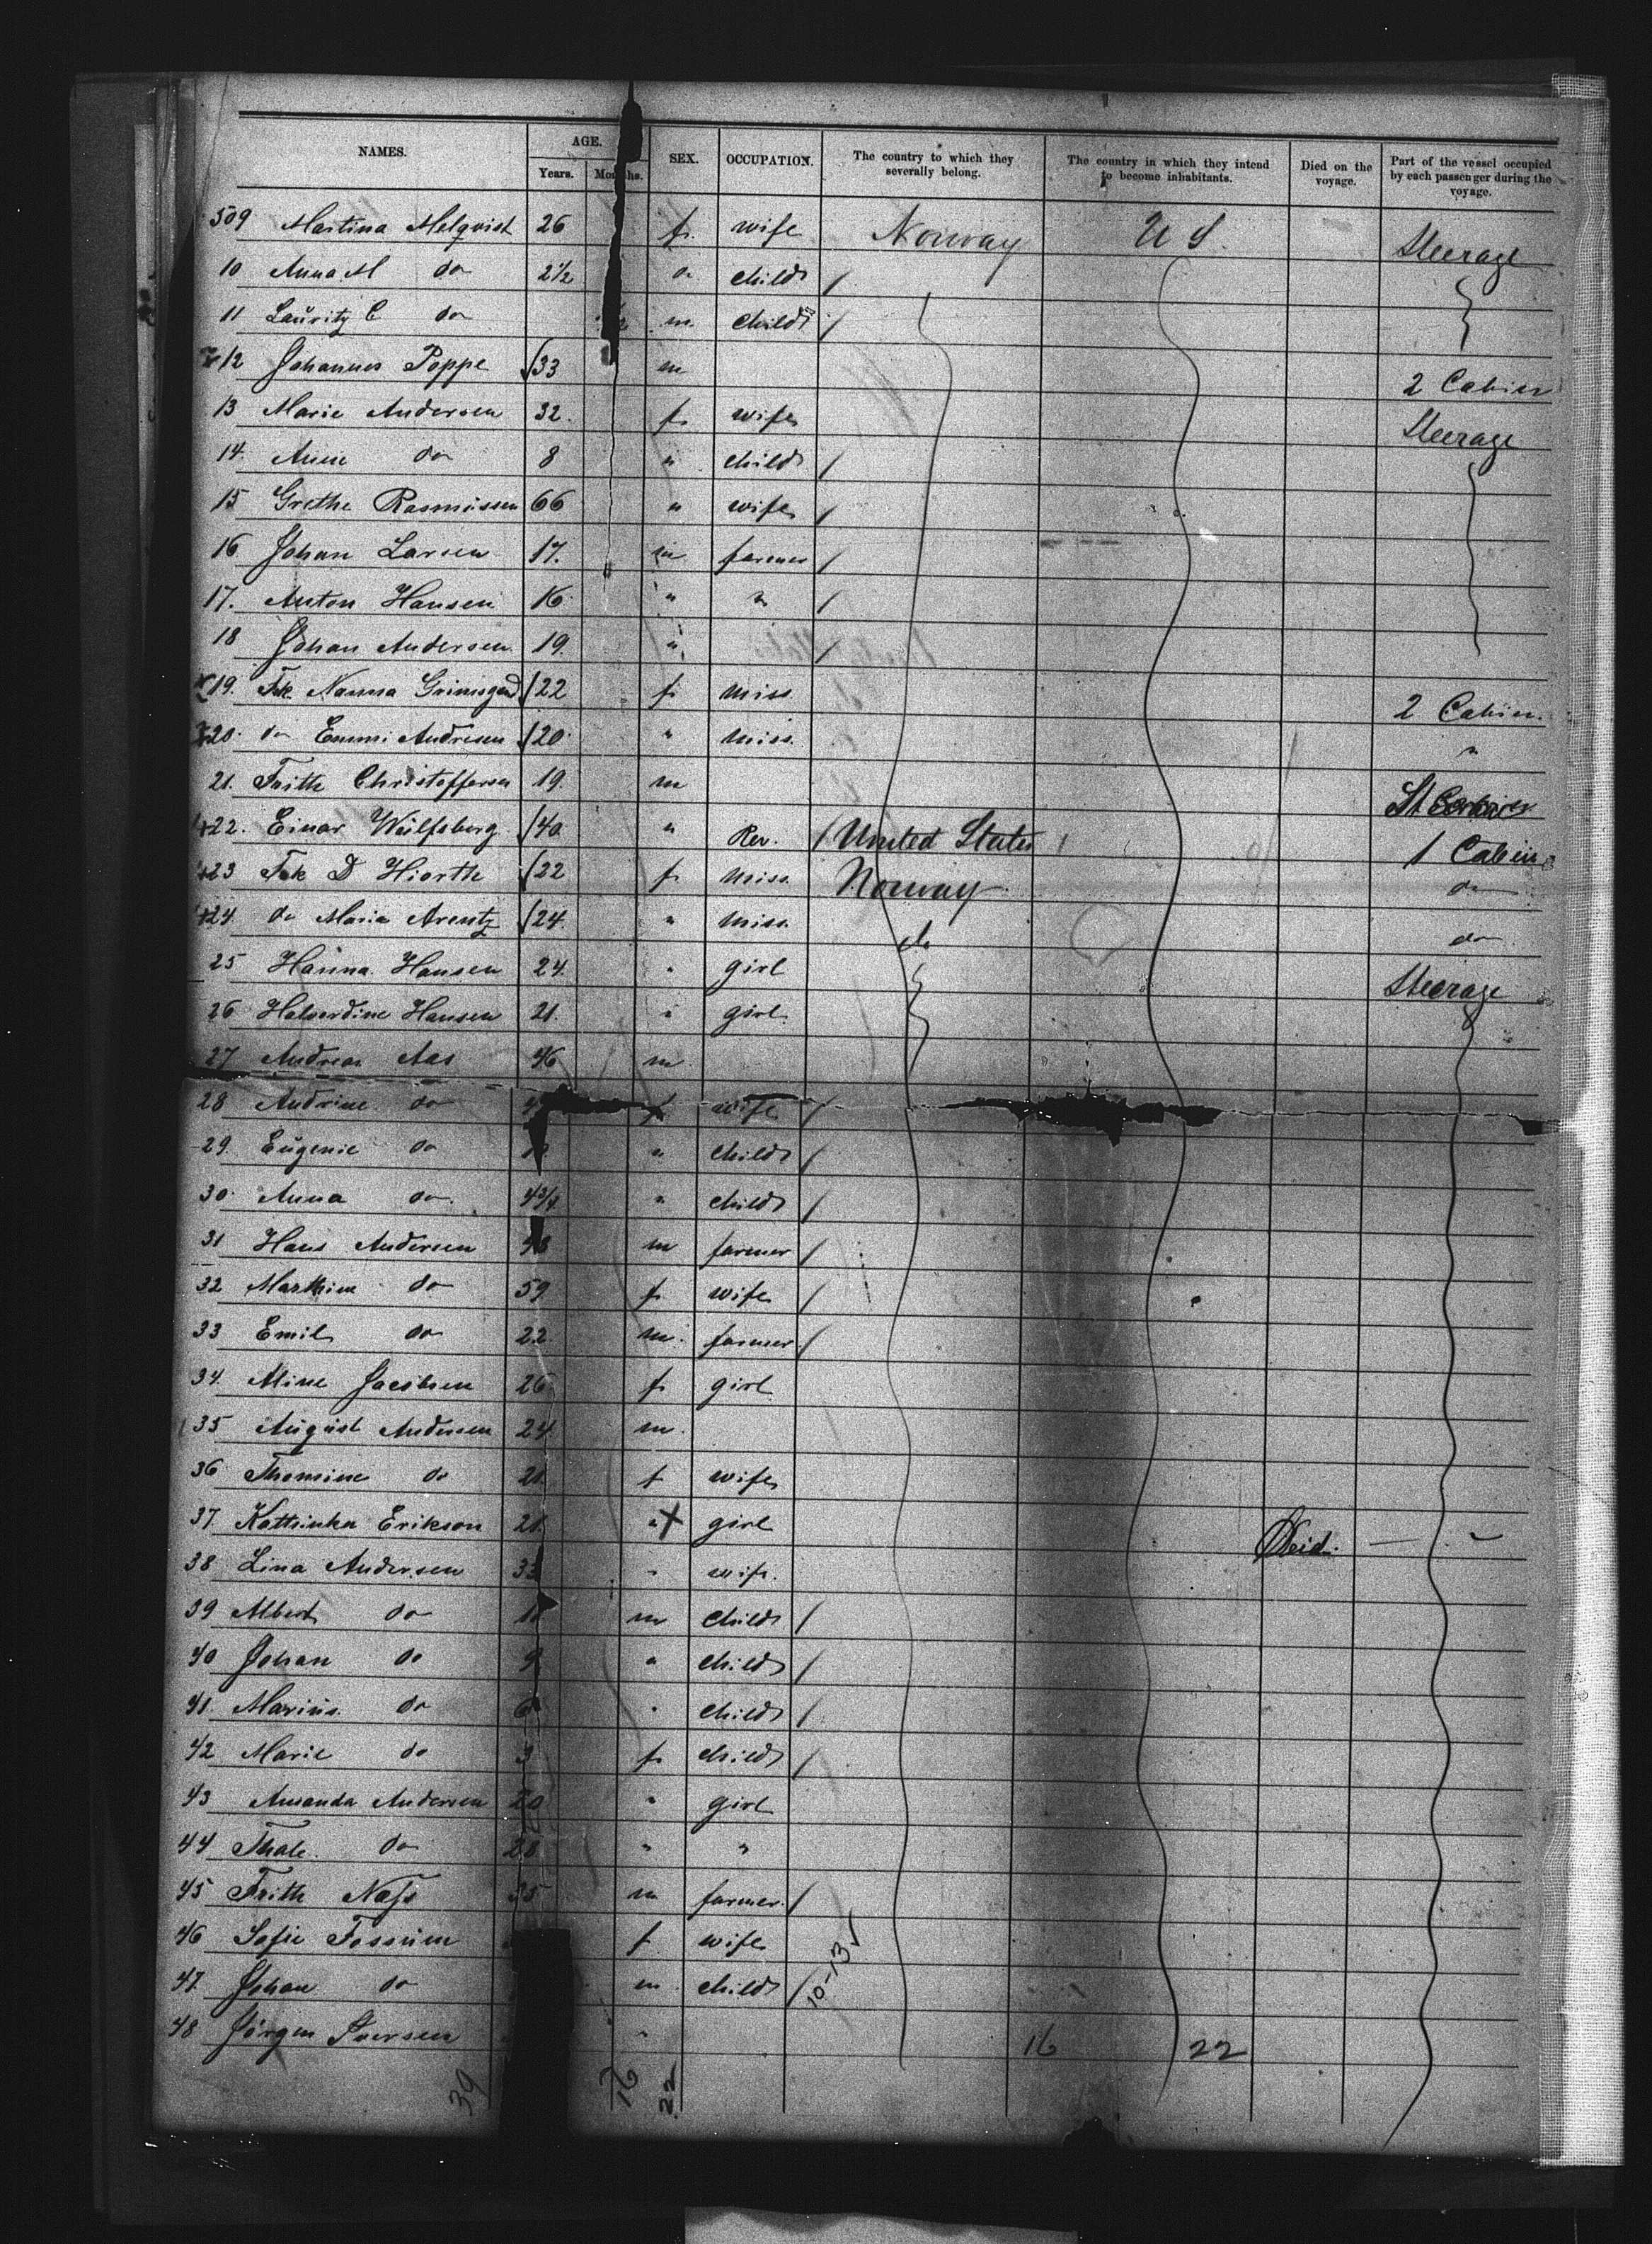 NAMES. AGE. Years. Months. SEX. OCCUPATION. The country to which they severally belong. The country in which they intend to become inhabitants. Died on the voyage. Part of the vessel occupied by each passenger during the voyage.
509 Martina Melqvist 26 f. wife Norway U S. Steerage
10 Anna M do 2 1/2 " child /
11 Lauritz C do m. child /
12 Johannes Poppe 33 m 2 Cabin
13 Marie Andersen 32. f. wife Steerage
14. Anna do 8 " child /
15 Grethe Rasmussen 66 " wife /
16 Johan Larsen 17. m farmer /
17. Anton Hansen 16 " " /
18 Johan Andersen 19. " /
19. Frk. Nanna 22 f. miss 2 Cabin.
20. do Emmi Andresen 20 " miss. "
21. Frith Christoffersen 19. m
22. Einar Wulfsberg 40 " Rev. / United States / 1 Cabin
23 Frk D Hiorth 22 f. miss Norway do
24 do Maria Arentz 24. " miss. do do
25 Hanna Hansen 24. " girl Steerage
26 Halvardine Hansen 21. " girl.
27 Andreas Aas 46 m.
28 Andrine do f wife /
29. Eugenie do " child /
30. Anna do. 4 3/4 " child /
31 Hans Andersen m farmer /
32 Marthine do 59 f. wife /
33 Emil do 22. m. farmer /
34. Mine Jacobsen 26. f. girl
35 August Andersen 24. m.
36 Thomine do 21. f wife
37. Kathinka Erikson 21. " X girl Deid. —
38 Lina Andersen 33 " wife.
39 Albert do m child /
40 Johan do 9 " child /
41. Marius do 6 " child /
42 Marie do 3 f. child /
43 Amanda Andersen 20 " girl
44 Thale. do 28 " "
45 Frith Næss 35 m farmer. /
46 Sofie Fossum f. wife
47. Johan do m. child / 10-13 ✓
48 Jörgen Iversen " 16 22
39 16 22